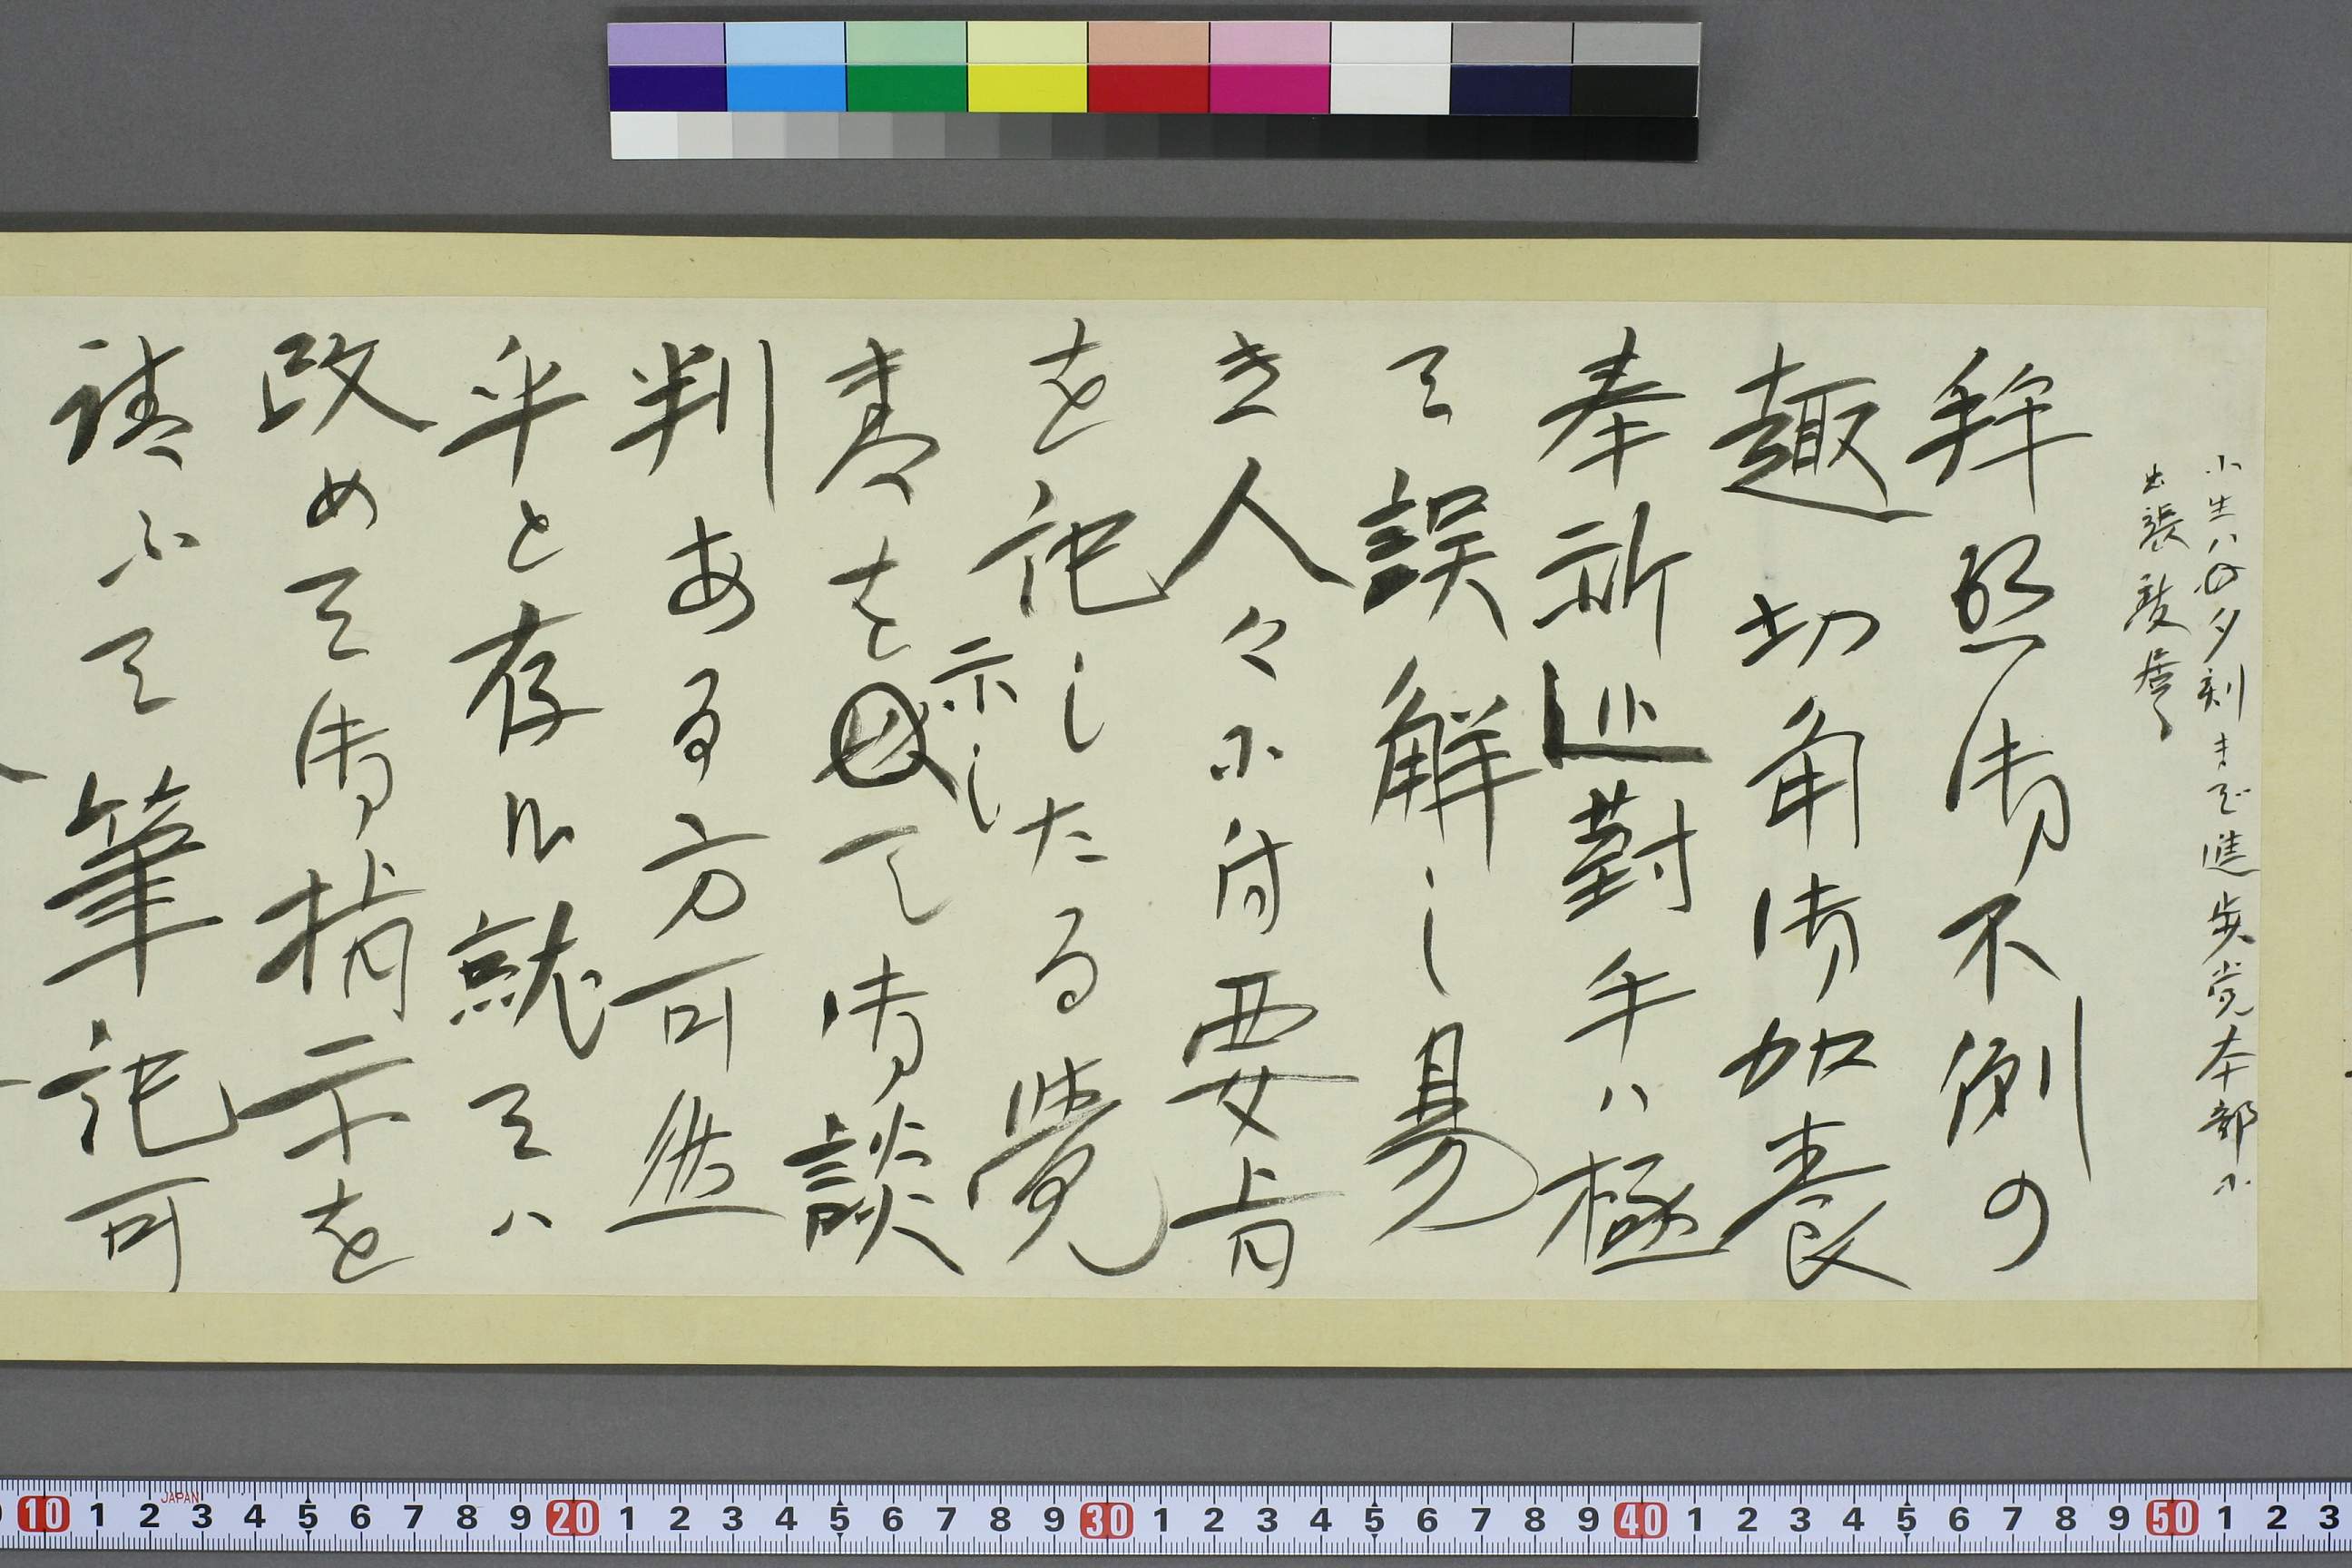 小生ハ夕刻まで進歩党本部ニ
出張致居候
拝啓御不例の
趣切角御加養
奉祈候対手ハ極
て誤解し易
き人々に付要旨
を記したる覚
書を示して御談
判ある方可然
乎と存候就てハ
改めて御指示を
請ふて筆記可
JAPAN
10 1 2 3 4 5 6 7 8 9 20 1 2 3 4 5 6 7 8 9 30 1 2 3 4 5 6 7 8 9 40 1 2 3 4 5 6 7 8 9 50 1 2 3